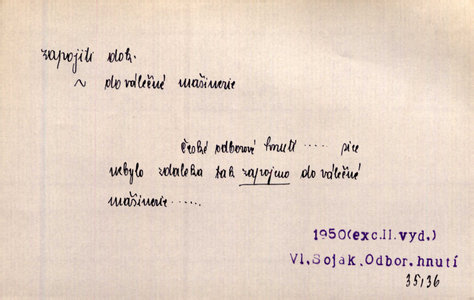 zapojiti dok.
~ do válečné mašinerie
České odborové hnutí ..... sice
nebylo zdaleka tak zapojeno do válečné
mašinerie ......
1950(exc.II.vyd.)
Vl.Soják,Odbor.hnutí
35,36